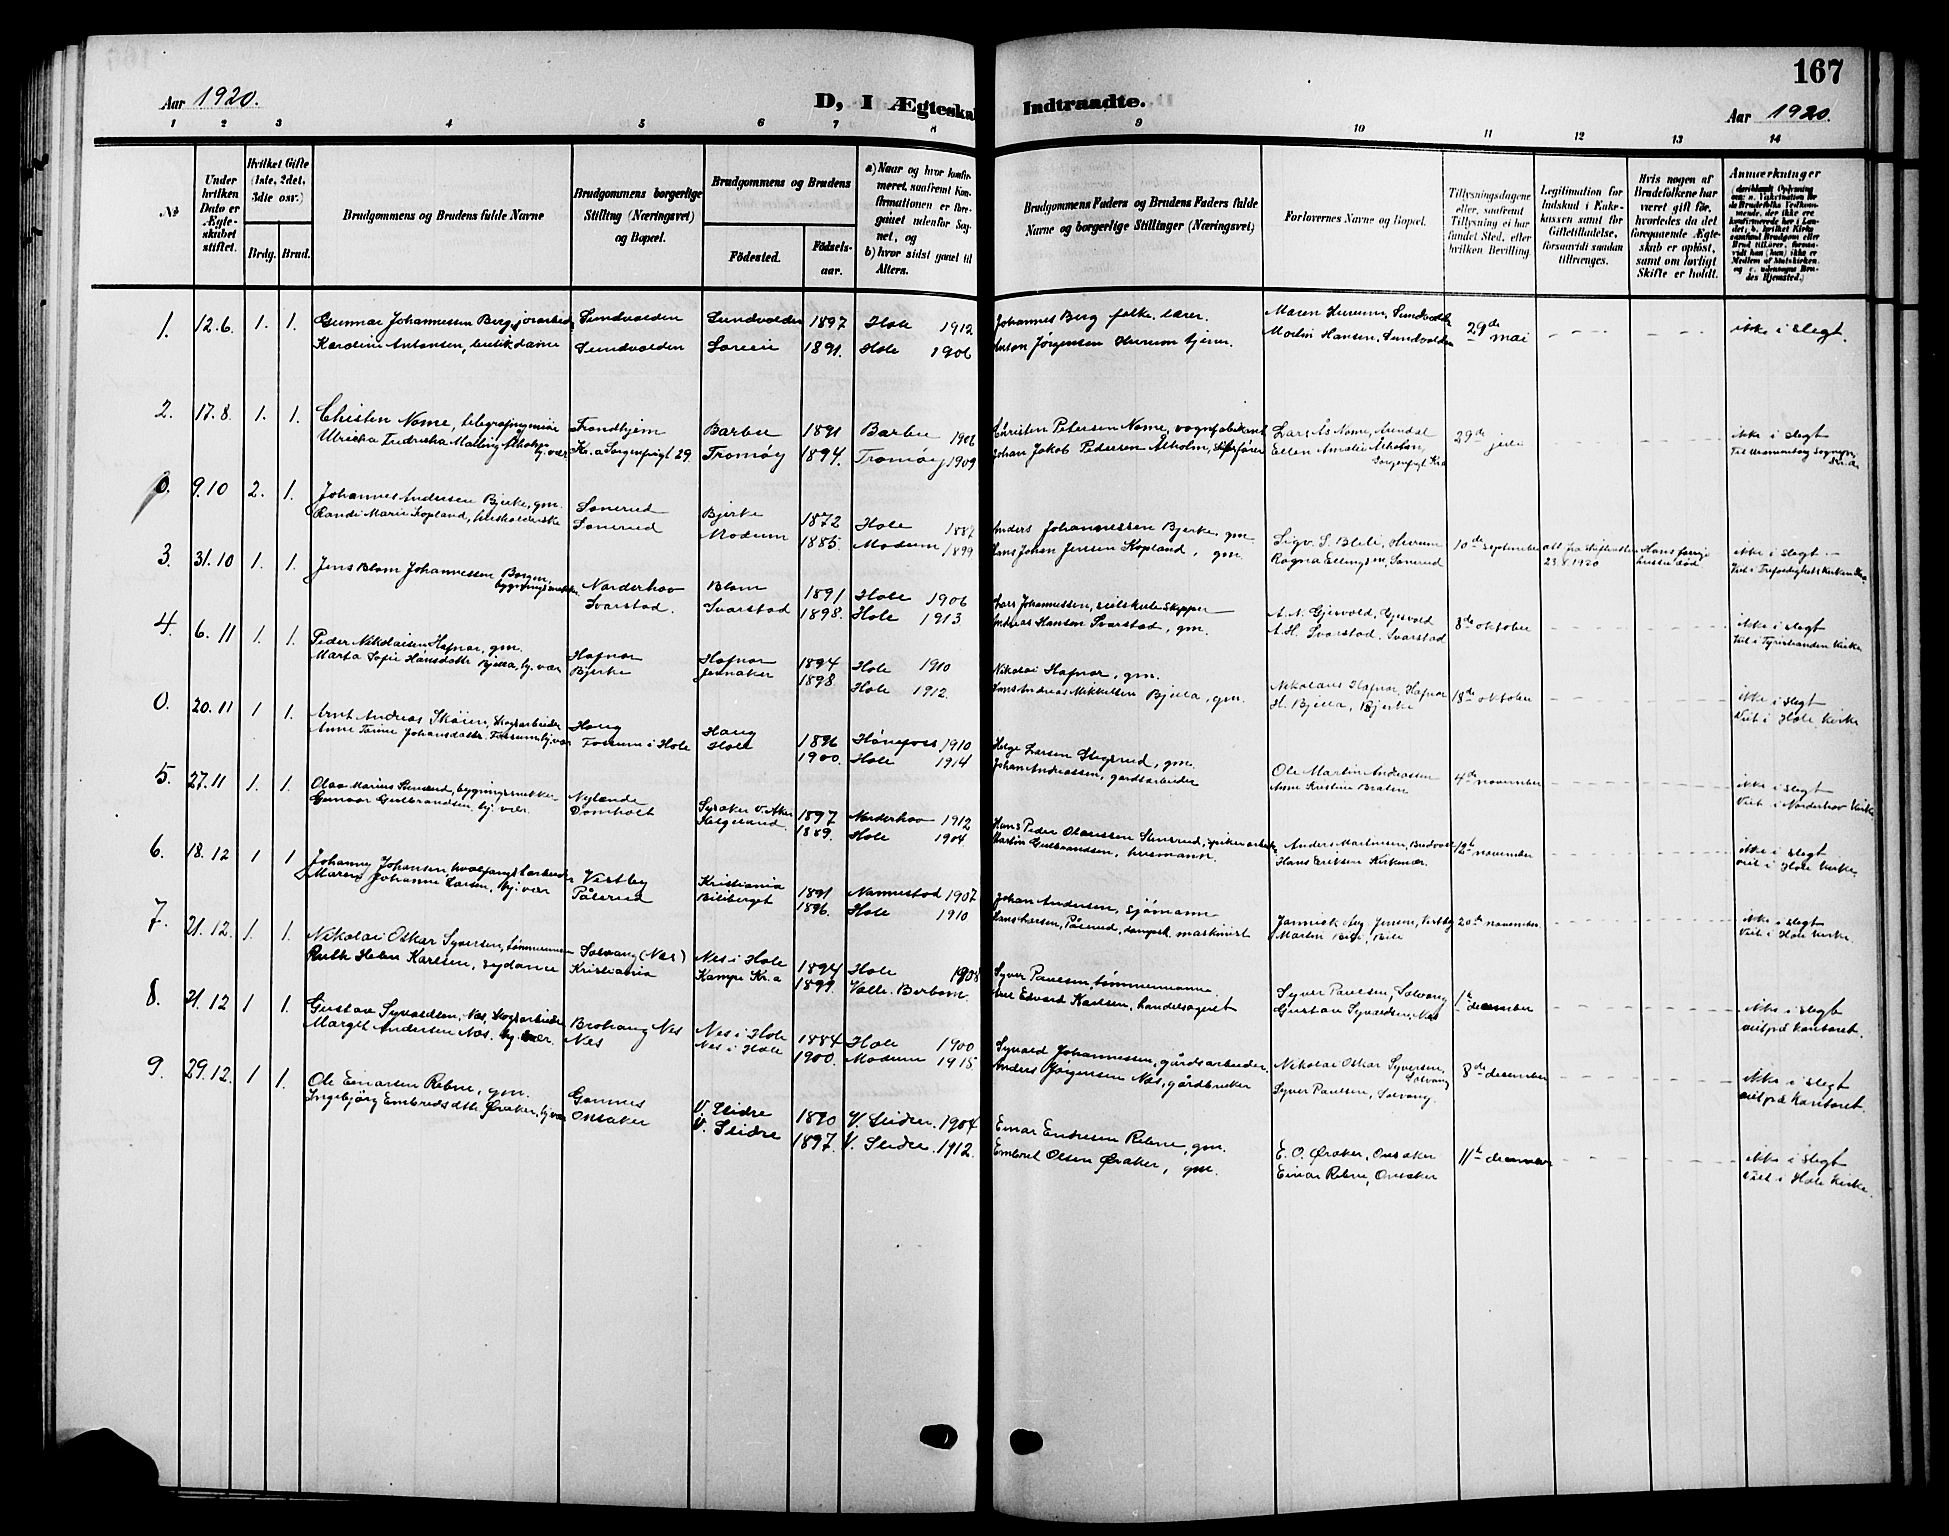 167
Aar 1920.
D, I Ægteska
Indtraadte.
Aar 1920.
1 2 3 4 5 6 7 8 9 10 11 12 13 14
№
Under hvilken Dato er Ægteskabet stiftet.
Hvilket Gifte (1ste, 2det, 3die osv.)
Brdg. Brud.
Brudgommens og Brudens fulde Navne
Brudgommens borgerlige Stilling (Næringsvei) og Bopæl.
Brudgommens og Brudens
Födested. Födsels-aar.
a) Naar og hvor konfirmeret, saafremt Konfirmationen er foregaaet udenfor Sognet, og
b) hvor sidst gaaet til Alters.
Brudgommens Faders og Brudens Faders fulde Navne og borgerlige Stillinger (Næringsvei)
Forlovernes Navne og Bopæl.
Tillysningsdagene eller, saafremt Tillysning ei har fundet Sted, efter hvilken Bevilling.
Legitimation for Indskud i Enkekassen samt for Giftetilladelse, forsaavidt saadan tiltrænges.
Hvis nogen af Brudefolkene har været gift för, hvorledes da det foregaaende Ægteskab er oplöst, samt om lovligt Skifte er holdt.
Anmærkninger
1. 12.6. 1. 1. Gunnar Johannessen Berg, jorarbeider Sundvolden Sundvolden 1897 Hole 1912 Johannes Berg folke. lærer. Maren Hurum, Sundvolden 29de mai ikke i slegt.
Karoline Antonsen, butikdame Sundvolden 1891. Hole 1906 Anton Jørgensen Hurum hjem. Martin Hansen, Sundvolden
2. 17.8. 1. 1. Christen Nome, telegrafingeniør Trondhjem Barbu 1891 Barbu 1906 Christen Petersen Nome, vognfabrikant Lars Ås Nome, Arendal 29de juli ikke i slegt
Ulricha Fredricka Malling Alholm hj. vær. Kr.a Sorgenfrigt 29. Tromøy 1894. Tromøy 1909 Johan Jakob Pedersen Alholm, skibsfører Ellen Amalie Alholm,
Sorgenfrigt Kr.a
0. 9.10 2. 1. Johannes Andersen Bjerke, gm. Sonerud Bjerke 1872 Hole 1887 Anders Johannessen Bjerke, gm Sigv. S. Bleli, Hurum 10de september att. fra skifteretten Hans forrige ikke i slegt.
Randi Marie Kopland, husholderske Sonerud Modum 1885. Modum 1899 Hans Johan Jensen Kopland, gm. Ragna Ellingsen, Sonerud 23.8.1920 hustru død Viet i Trefoldighets kirken
3. 31.10 1. 1. Jens Blom Johannessen Borgen, bygningssnekker Norderhov Blom 1891 Hole 1906 Lars Johannessen, seilskute skipper A. N. Gjesvold, Gjesvold 8de oktober ikke i slegt
Svarstad. Svarstad 1898. Hole 1913 Andreas Hanson Svarstad, gm. A. H. Svarstad, Svarstad Viet i Tyristranden kirke
4. 6.11 1. 1. Peder Nikolaisen Hafnor, gm. Hafnor Hafnor 1894 Hole 1910 Nikolai Hafnor, gm. Nikolaus Hafnor, Hafnor 18de oktober ikke i slegt
Marta Sofie Hansdatter Bjella, hj. vær Bjerke Jevnaker 1898. Hole 1912. Hans Andreas Mikkelsen Bjella, gm. H. Bjella, Bjerke Viet i Hole kirke
0. 20.11 1 1. Arnt Andreas Skøien, skogsarbeider Haug Haug 1896 Hønefoss 1910 Helge Larsen Stegerud, gm. Ole Martin Andreassen 4de november ikke i slegt
Anne Tomine Johansdatter Fossum hj. vær Fossum i Hole Hole 1900. Hole 1914 Johan Andreassen, gardsarbeider Anne Kristine Braten Viet i Norderhov kirke
5. 27.11 1. 1. Olav Marius Stensrud, bygningssnekker Nylende 1897 Norderhov 1912 Hans Peder Olavessen Stensrud, Anders Martinsen, ikke i slegt
Gunvor Gulbrandsen, hj. vær. Domholt Helgerud 1889. Hole 1904 Martin Gulbrandsen, husmann. Hans Eriksen Kirkenær. november viet i Hole kirke.
6. 18.12 1 1 Johanny Johansen hvalfangstarbeider Vestby Kristiania 1891 Nannestad 1907 Johan Andersen, sjømann Jannick Jensen, Vestby 20de november. ikke i slegt
Maren Johanne Larsen, hj. vær Påserud Biliberget 1896. Hole 1910 Hans Larsen, Påserud, dampsk. maskinist Martin Bili, Bili Viet i Hole kirke.
7 21.12. 1. 1. Nikolai Oskar Syversen, tømmermann Solvang (Nes) Nes i Hole 1894 Hole 1908 Syver Paulsen, tømmermann Syver Paulsen, Solvang 1ste december ikke i slegt
Ruth Helen Karlsen, sydame Kristiania Kampe Kr.a 1899. Valle. Axel Edvard Karlsen, handelsagent Gustav Syvaldsen, Nes viet på kontoret.
8. 21.12 1 1. Gustav Syvaldsen, Nes, skogsarbeider Brohaug Nes Nes i Hole 1884 Hole 1900 Syvald Johannessen, gårdsarbeider Nikolai Oskar Syversen, Solvang 8de december ikke i slegt
Margit Andersen Nes. hj. vær. Nes Nes i Hole 1900. Modum 1915 Anders Jørgensen Nes, gårdbruker Syver Paulsen, Solvang. viet på kontoret.
9. 29.12. 1 1. Ole Einarsen Rebne, gm. Gomnes V. Slidre 1890 V. Slidre. 1904 Einar Endresen Rebne, gm. E. O. Øraker, Onsaker 11te december ikke i slegt
Ingebjørg Embredsdtr. Øraker, hj. vær Onsaker V. Slidre 1897. V. Slidre. 1912. Embret Olsen Øraker, gm. Einar Rebne, Onsaker viet i Hole kirke.